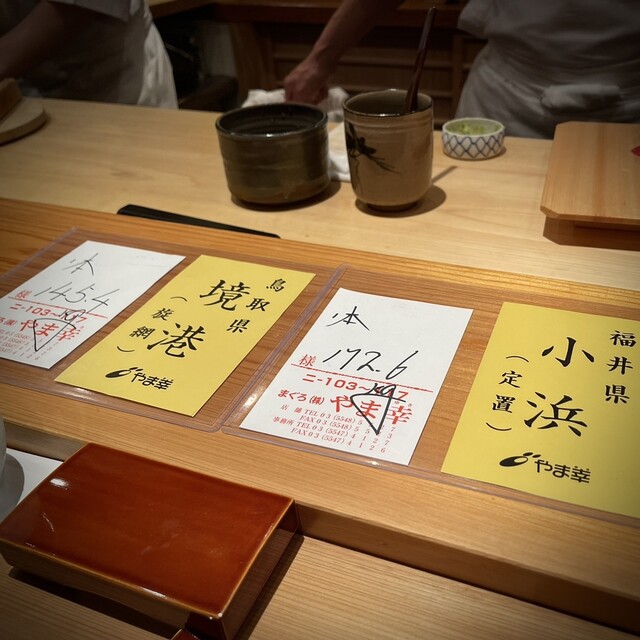 本
145.4
ニ-103~
やま幸
鳥取県
境港
(旋網)
やま幸
本
様 172.6
ニ-103~107
まぐろ(株) やま幸
店舗 TEL 03 (5548)
FAX 03 (5548)
事務所 TEL 03 (5547)
FAX 03 (5547)
福井県
小浜
(定置)
やま幸